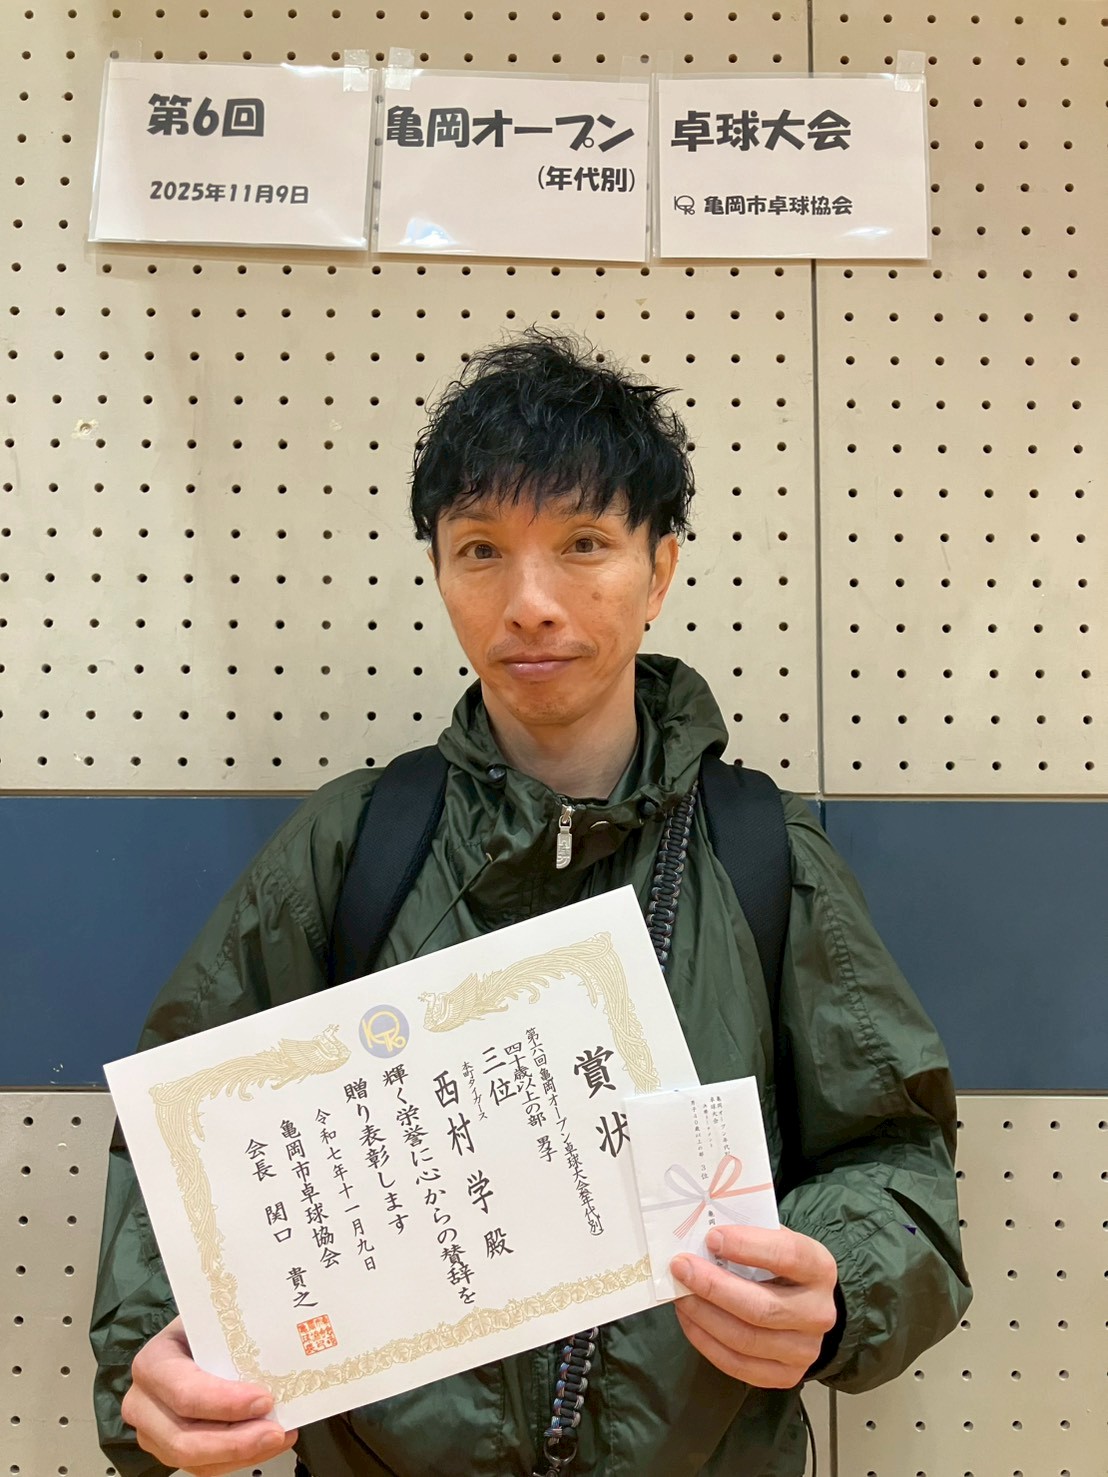 第6回
2025年11月9日
亀岡オープン
(年代別)
卓球大会
亀岡市卓球協会
賞状
第六回亀岡オープン卓球大会(年代別)
四十歳以上の部 男子
三位
本町タイガース
西村 学 殿
輝く栄誉に心からの賛辞を
贈り表彰します
令和七年十一月九日
亀岡市卓球協会
会長 関口 貴之
3位
亀岡